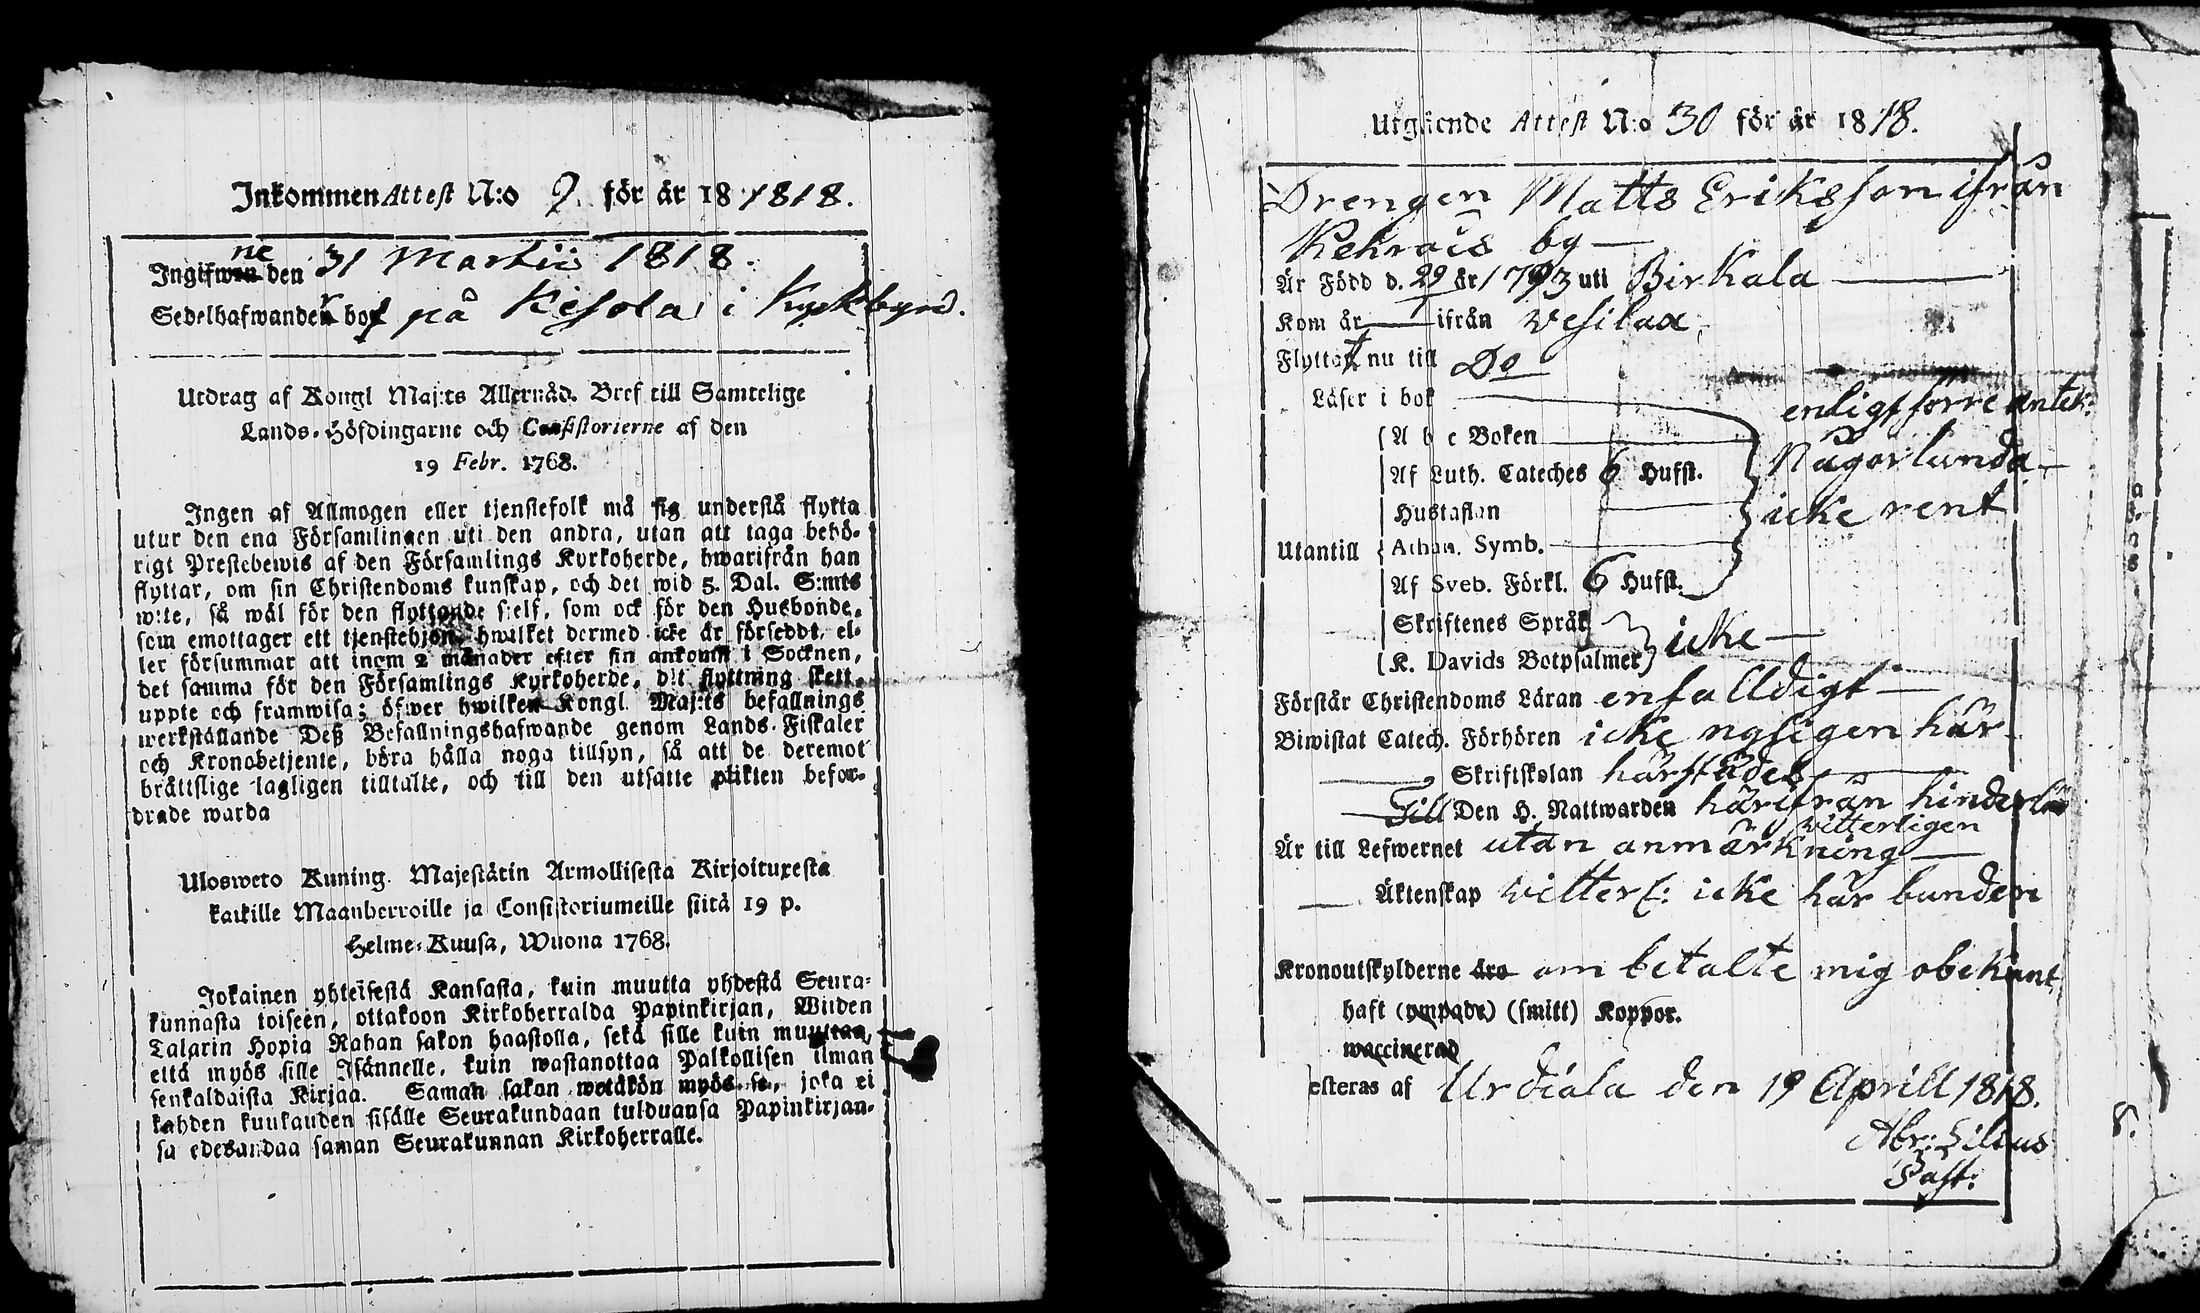 Inkommen Attest N:o 9. för år 18 1818.
ne
Ingifwen den 31 Martii 1818.
Sedelhafwanden bor på Kesola i Kyrkbyn.
Utdrag af Kongl Maj:ts Allernåd. Bref till Samtelige
Lands-Höfdingarne och Consistorierne af den
19 Febr. 1768.
Ingen af Allmogen eller tjenstefolk må sig understå flytta
utur den ena Församlingen uti den andra, utan att taga behö-
rigt Prestebewis af den Församlings Kyrkoherde, hwarifrån han
flyttar, om sin Christendoms kunskap, och det wid 5. Dal. S:mts
wite, så wäl för den flyttande sjelf, som ock för den Husbonde,
som emottager ett tjenstehjon, hwilket dermed icke är förseddt, el-
ler försummar att inom 2 månader efter sin ankomst i Socknen,
det samma för den Församlings Kyrkoherde, dit flyttning skett,
uppte och framwisa; öfwer hwilken Kongl Maj:ts befallnings
werkställande Deß Befallningshafwande genom Lands-Fiskaler
och Kronobetjente, böra hålla noga tillsyn, så att de deremot
bråttslige lagligen tilltalte, och till den utsatte plikten befor-
drade warda
Ulosweto Kuning. Majestätin Armollisesta Kirjoituxesta
kaikille Maanherroille ja Consistoriumeille siitä 19 p.
Helme-Kuusa, Wuona 1768.
Jokainen yhteisestä Kansasta, kuin muutta yhdestä Seura-
kunnasta toiseen, ottakoon Kirkoherralda Papinkirjan, Wiiden
Talarin Hopia Rahan sakon haastolla, sekä sille kuin muuttaa,
että myös sille Isännelle, kuin wastanottaa Palkollisen ilman
senkaldaista Kirjaa. Saman sakon wetäkön myös se, joka ei
kahden kuukauden sisälle Seurakundaan tulduansa Papinkirjan-
sa edesandaa saman Seurakunnan Kirkoherralle.
Utgående Attest N:o 30 för år 1818.
Drengen Matts Eriksson ifrån
Kehrois by
Är Född d. 29 år 1793 uti Birkala
Kom år ifrån Vesilax
Flyttat nu till Do
Läser i bok enligt förre antek:
A b c Boken
Af Luth. Cateches 6 Hufst. Någorlunda
Hustaflan icke rent
Utantill Athan. Symb.
Af Sveb. Förkl. 6 Hufst.
Skriftenes Språk
K. Davids Botpsalmer icke
Förstår Christendoms Läran enfalldigt
Biwistat Catech. Förhören icke nyligen här
Skriftskolan härstädes
Till Den H. Nattwarden härifrån hinderlös
vitterligen
Är till Lefwernet utan anmärkning
Äktenskap vitterl: icke här bunden
Kronoutskylderne äro om betalte mig obekant
haft (ympade) (smitt) Koppor.
waccinerad
esteras af Urdiala den 19 Aprill 1818.
Abr: Lilius
Past: